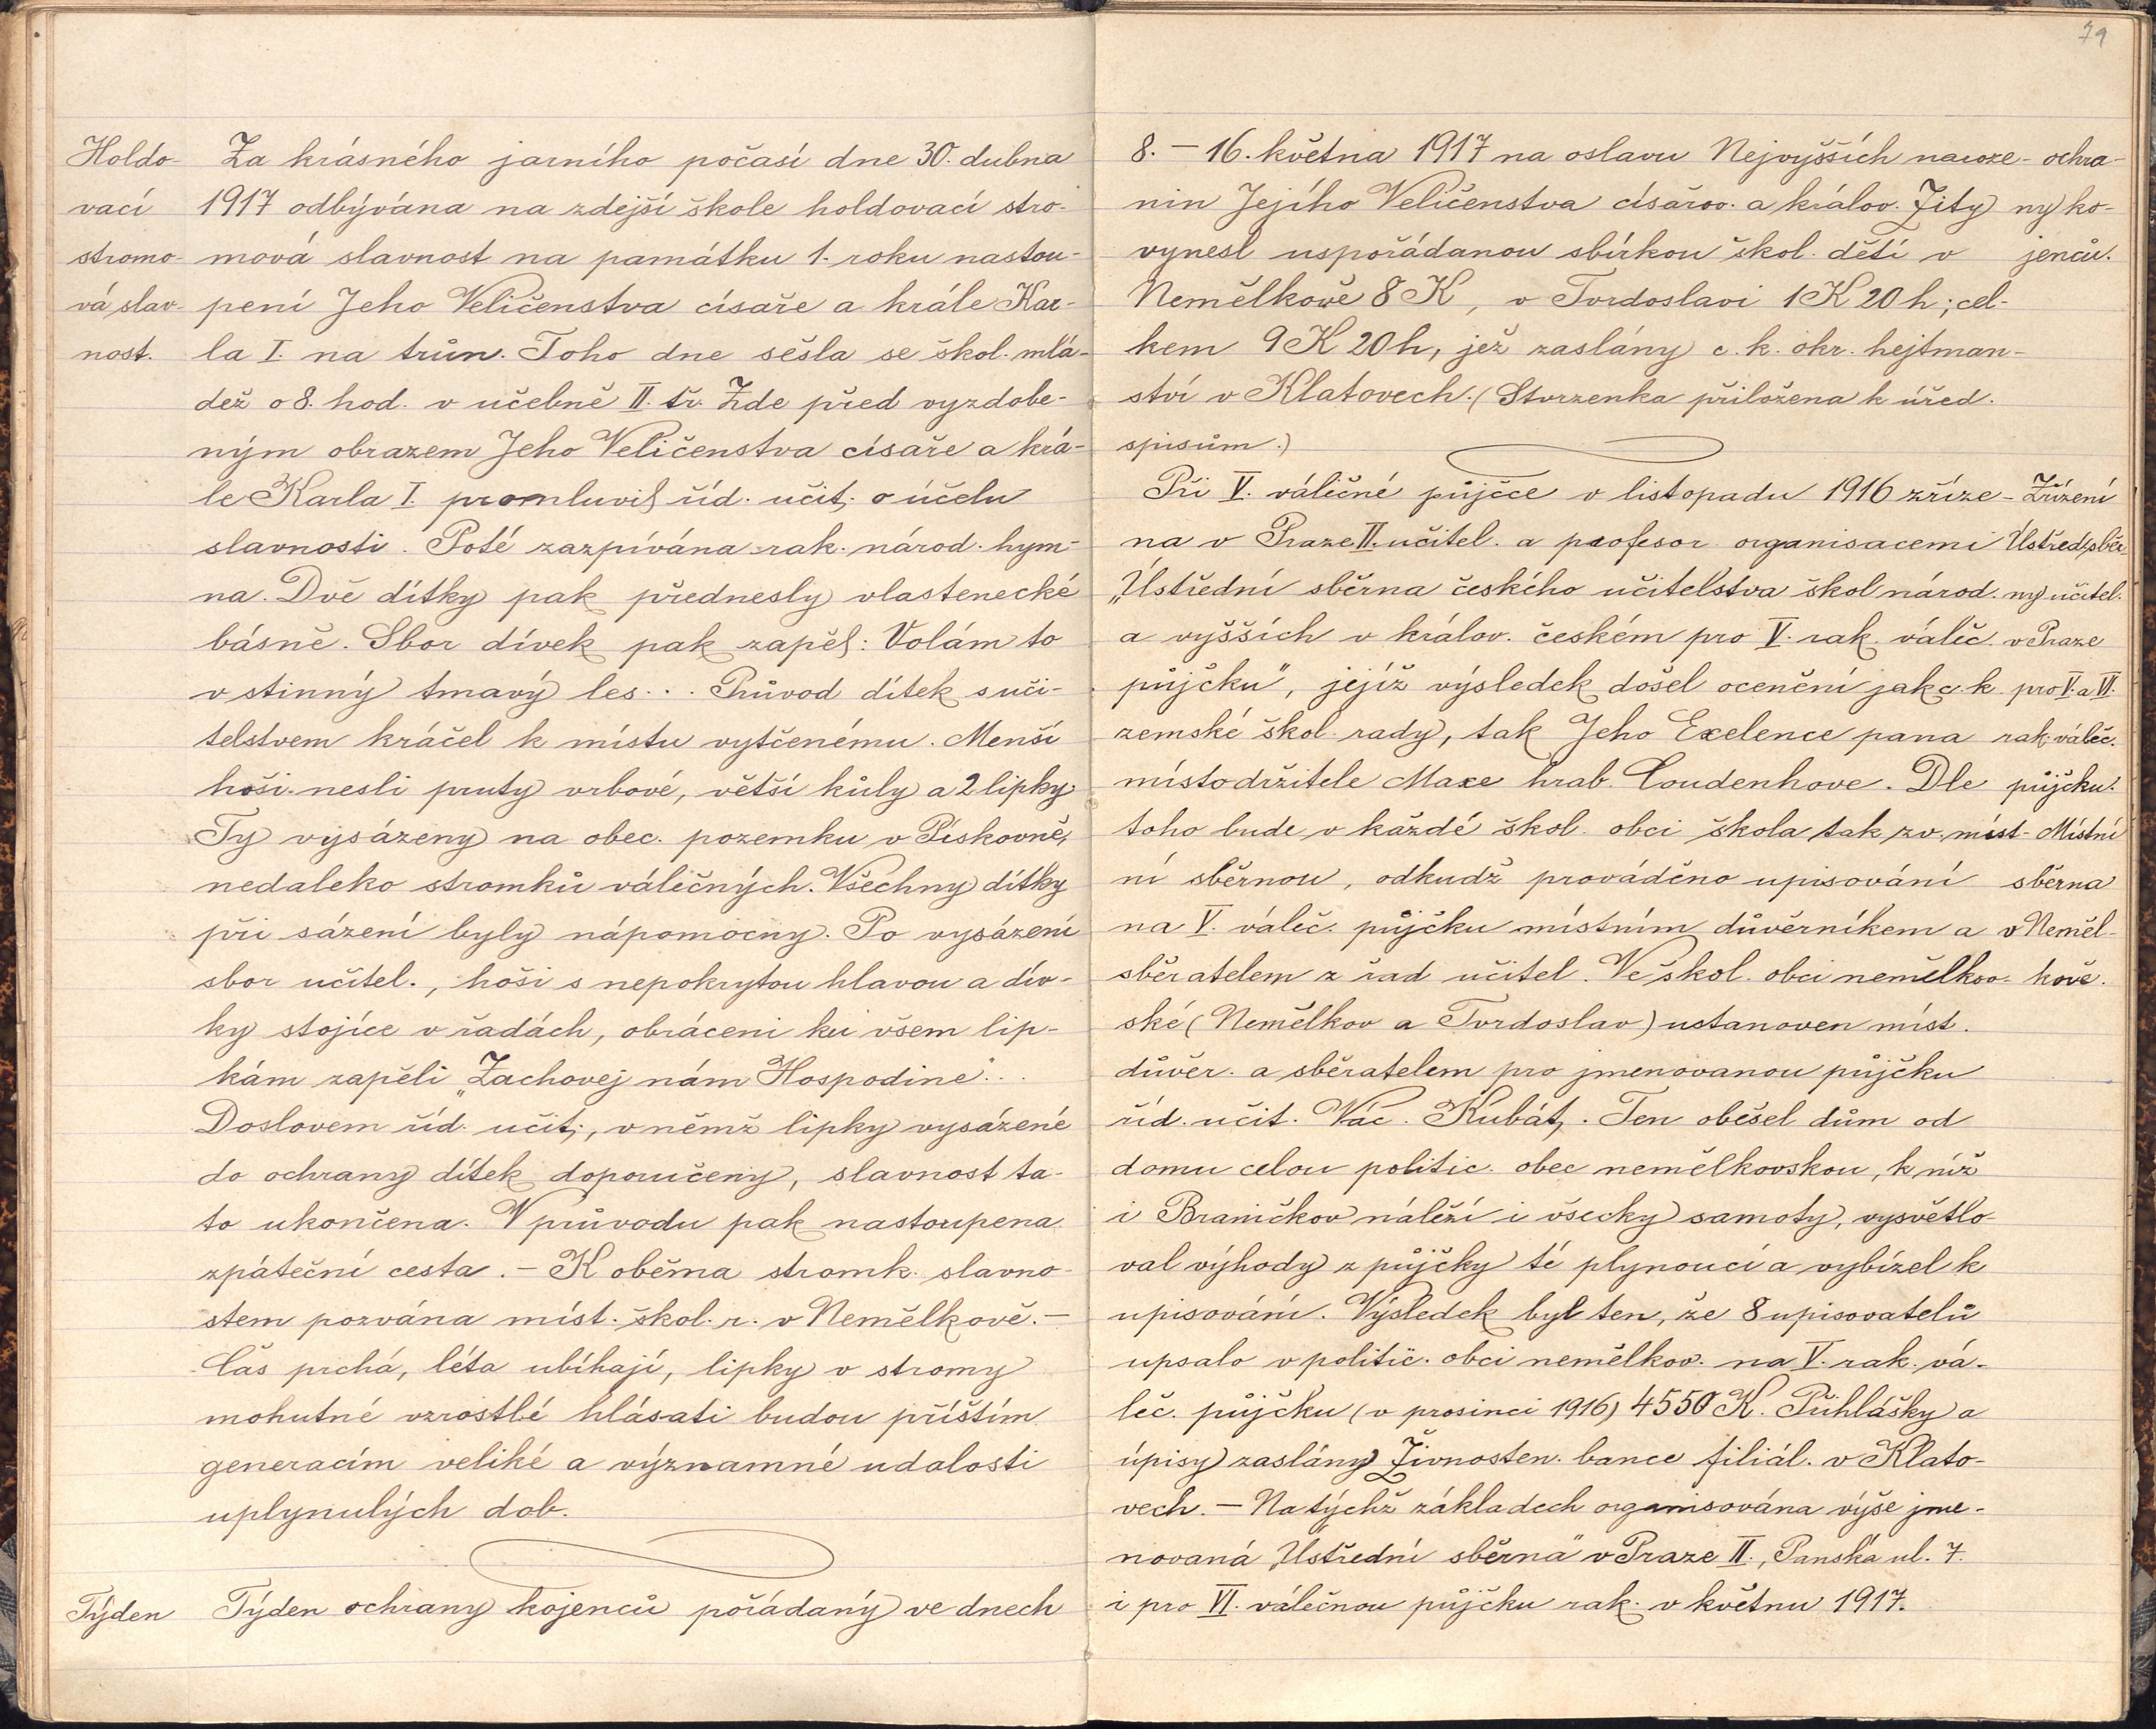 Holdo- Za krásného jarního počasí dne 30. dubna
vací 1917 odbývána na zdejší škole holdovací stro-
stromo- mová slavnost na památku 1. roku nastou-
vá slav- pení Jeho Veličenstva císaře a krále Kar-
nost. la I. na trůn. Toho dne sešla se škol. mlá-
dež o 8. hod. v učebně II. tř. Zde před vyzdobe-
ným obrazem Jeho Veličenstva císaře a krá-
le Karla I. promluvil říd. učit. o účelu
slavnosti. Poté zazpívána rak. národ. hym-
na. Dvě dítky pak přednesly vlastenecké
básně. Sbor dívek pak zapěl: Volám to
v stinný tmavý les... Průvod dítek s uči-
telstvem kráčel k místu vytčenému. Menší
hoši nesli pruty vrbové, větší kůly a 2 lipky.
Ty vysázeny na obec. pozemku v Pískovně,
nedaleko stromků válečných. Všechny dítky
při sázení byly nápomocny. Po vysázení
sbor učitel., hoši s nepokrytou hlavou a dív-
ky stojíce v řadách, obráceni ku všem lip-
kám zapěli „Zachovej nám Hospodine"...
Doslovem říd. učit., v němž lipky vysázené
do ochrany dítek doporučeny, slavnost ta-
to ukončena. V průvodu pak nastoupena
zpáteční cesta. – K oběma stromk. slavno-
stem pozvána míst. škol. r. v Nemělkově. –
Čas prchá, léta ubíhají, lipky v stromy
mohutné vzrostlé hlásati budou příštím
generacím veliké a významné udalosti
uplynulých dob.
Týden Týden ochrany kojenců pořádaný ve dnech
79
8. – 16. května 1917 na oslavu Nejvyšších naroze- ochra-
nin Jejího Veličenstva císařov. a králov. Zity ny ko-
vynesl uspořádanou sbírkou škol. dětí v jenců.
Nemělkově 8 K, v Tvrdoslavi 1 K 20 h; cel-
kem 9 K 20 h, jež zaslány c. k. okr. hejtman-
ství v Klatovech. (Stvrzenka přiložena k úřed.
spisům.)
Při V. válečné půjčce v listopadu 1916 zříze- Zřízení
na v Praze II. učitel. a profesor. organisacemi Ústřed. sběr-
„Ústřední sběrna českého učitelstva škol národ. ny učitel.
a vyšších v králov. českém pro V. rak. váleč. v Praze
půjčku", jejíž výsledek došel ocenění jak c. k. pro V. a VI.
zemské škol. rady, tak Jeho Exelence pana rak. váleč.
místodržitele Maxe hrab. Coudenhove. Dle půjčku.
toho bude v každé škol. obci škola tak zv. míst- Místní
ní sběrnou, odkudž prováděno upisování sběrna
na V. váleč. půjčku místním důvěrníkem a v Neměl-
sběratelem z řad učitel. Ve škol. obci nemělkov- kově.
ské (Nemělkov a Tvrdoslav) ustanoven míst.
důvěr. a sběratelem pro jmenovanou půjčku
říd. učit. Vác. Kubát. Ten oběšel dům od
domu celou politic. obec nemělkovskou, k níž
i Braničkov náleží i všecky samoty, vysvětlo-
val výhody z půjčky té plynoucí a vybízel k
upisování. Výsledek byl ten, že 8 upisovatelů
upsalo v politic. obci nemělkov. na V. rak. vá-
leč. půjčku (v prosinci 1916) 4550 K. Přihlášky a
úpisy zaslány Živnosten. bance filiál. v Klato-
vech. – Na týchž základech organisována výše jme-
novaná „Ústřední sběrna" v Praze II., Panská ul. 7.
i pro VI. válečnou půjčku rak. v květnu 1917.